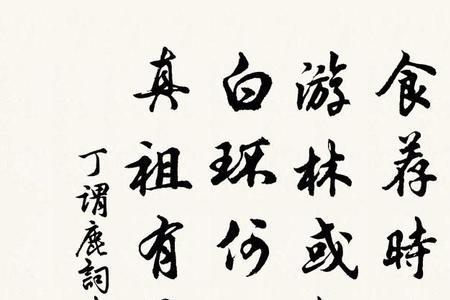 食荐時
游林或
白环何
真祖有
丁謂鹿詞